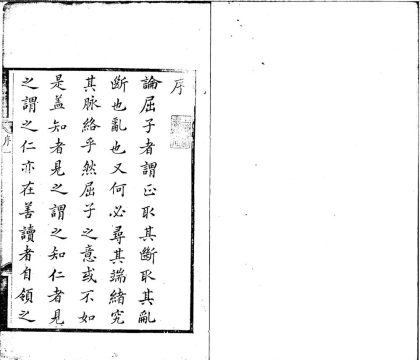 序
論屈子者謂正取其斷取其亂
斷也亂也又何必尋其端緒究
其脉絡乎然屈子之意或不如
是盖知者見之謂之知仁者見
之謂之仁亦在善讀者自領之
序